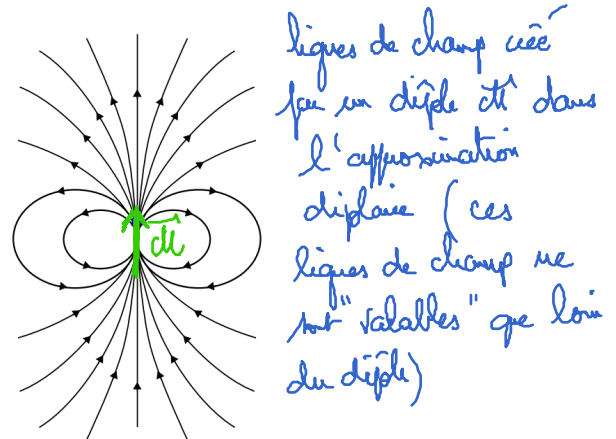 lignes de champ créé
par un dipôle ℳ dans
l'approximation
dipolaire (ces
lignes de champ ne
sont "valables" que loin
du dipôle)
ℳ